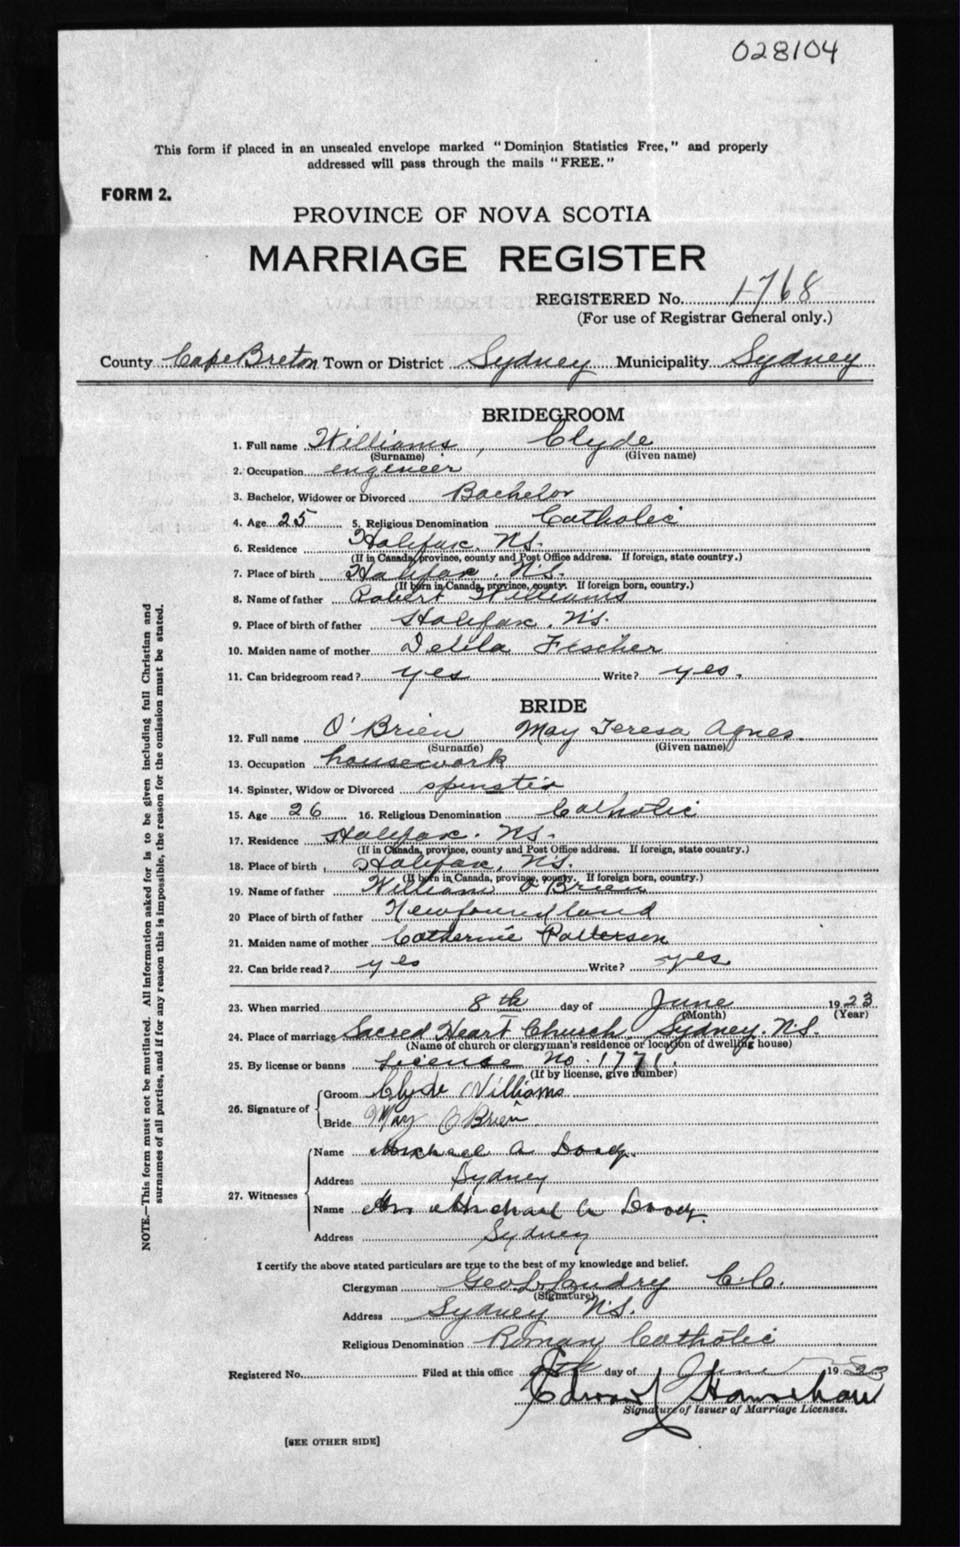 028104
This form if placed in an unsealed envelope marked "Dominion Statistics Free," and properly
addressed will pass through the mails "FREE."
FORM 2.
PROVINCE OF NOVA SCOTIA
MARRIAGE REGISTER
REGISTERED No. 1768
(For use of Registrar General only.)
County Cape Breton Town or District Sydney Municipality Sydney
BRIDEGROOM
1. Full name Williams, Clyde
(Surname) (Given name)
2. Occupation engineer
3. Bachelor, Widower or Divorced Bachelor
4. Age 25 5. Religious Denomination Catholic
6. Residence Halifax, N.S.
(If in Canada, province, county and Post Office address. If foreign, state country.)
7. Place of birth Halifax, N.S.
(If born in Canada, province, county. If foreign born, country.)
8. Name of father Robert Williams
9. Place of birth of father Halifax, N.S.
10. Maiden name of mother Delila Fischer
11. Can bridegroom read? yes Write? yes.
BRIDE
12. Full name O'Brien May Teresa Agnes.
(Surname) (Given name)
13. Occupation housework
14. Spinster, Widow or Divorced spinster
15. Age 26 16. Religious Denomination Catholic
17. Residence Halifax. N.S.
(If in Canada, province, county and Post Office address. If foreign, state country.)
18. Place of birth Halifax, N.S.
(If born in Canada, province, county. If foreign born, country.)
19. Name of father William O'Brien
20 Place of birth of father Newfoundland
21. Maiden name of mother Catherine Patterson
22. Can bride read? yes Write? yes
23. When married 8th day of June 1923
(Month) (Year)
24. Place of marriage Sacred Heart Church, Sydney. N.S.
(Name of church or clergyman's residence or location of dwelling house)
25. By license or banns License No. 1771.
(If by license, give number)
26. Signature of
Groom Clyde Williams
Bride May O'Brien
27. Witnesses
Name Michael A
Address Sydney
Name Mrs Michael A
Address Sydney
I certify the above stated particulars are true to the best of my knowledge and belief.
Clergyman Geo L Landry C.C.
(Signature)
Address Sydney N.S.
Religious Denomination Roman Catholic
Registered No. Filed at this office 8th day of June 1923
Edward
Signature of Issuer of Marriage Licenses.
[SEE OTHER SIDE]
NOTE.—This form must not be mutilated. All information asked for is to be given including full Christian and
surnames of all parties, and if for any reason this is impossible, the reason for the omission must be stated.